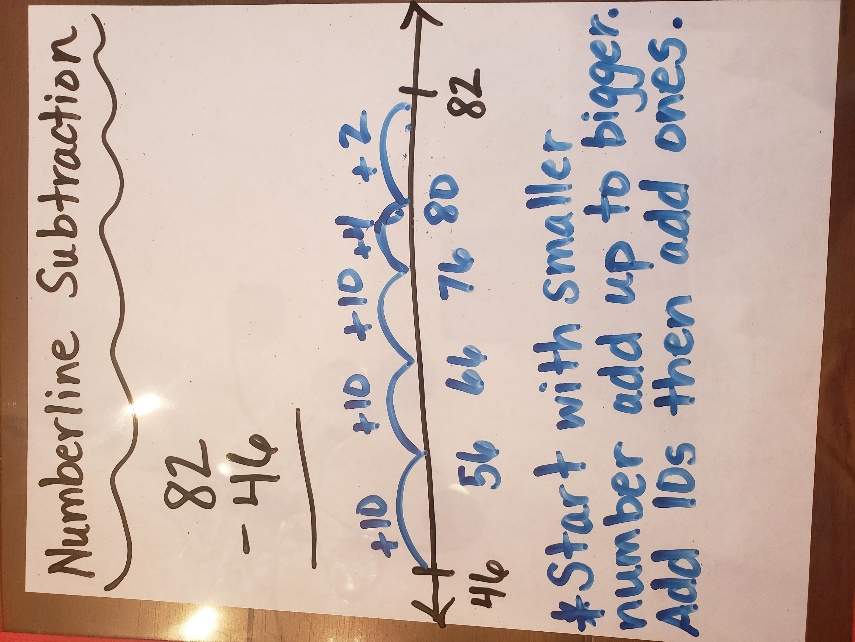 Numberline Subtraction
82
- 46
+10 +10 +10 +4 +2
46 56 66 76 80 82
*Start with smaller
number add up to bigger.
Add 10s then add ones.